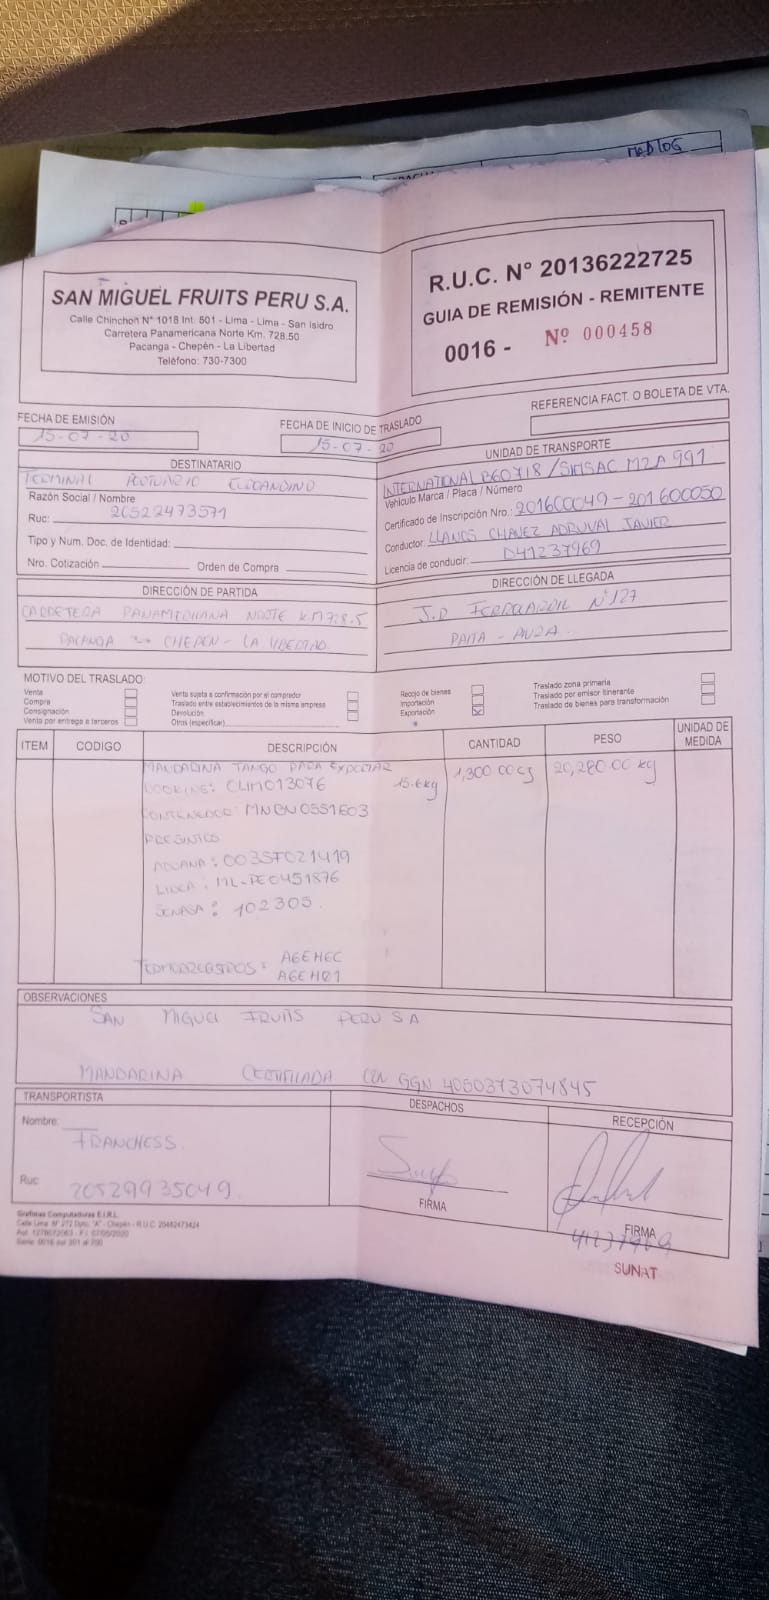 MADLOG
SAN MIGUEL FRUITS PERU S.A.
Calle Chinchon N° 1018 Int. 501 - Lima - Lima - San Isidro
Carretera Panamericana Norte Km. 728.50
Pacanga - Chepén - La Libertad
Teléfono: 730-7300
R.U.C. N° 20136222725
GUIA DE REMISIÓN - REMITENTE
0016 - Nº 000458
FECHA DE EMISIÓN
15-07-20
FECHA DE INICIO DE TRASLADO
15-07-20
REFERENCIA FACT. O BOLETA DE VTA.
DESTINATARIO
TERMINAL PORTUARIO EUROANDINO
Razón Social / Nombre
Ruc: 20522473571
Tipo y Num. Doc. de Identidad:
Nro. Cotización Orden de Compra
UNIDAD DE TRANSPORTE
INTERNATIONAL B6O718 / M2A 991
Vehículo Marca / Placa / Número
Certificado de Inscripción Nro.: 201600049 - 201600050
Conductor: LLANOS CHAVEZ JAVIER
Licencia de conducir: D41237969
DIRECCIÓN DE PARTIDA
CARRETERA PANAMERICANA NORTE KM 728.5
PACANGA - CHEPEN - LA LIBERTAD
DIRECCIÓN DE LLEGADA
J.R FERROCARRIL N° 127
PAITA - PIURA
MOTIVO DEL TRASLADO:
Venta
Compra
Consignación
Venta por entrega a terceros
Venta sujeta a confirmación por el comprador
Traslado entre establecimientos de la misma empresa
Devolución
Otros (especificar)
Recojo de bienes
Importación
Exportación X
Traslado zona primaria
Traslado por emisor itinerante
Traslado de bienes para transformación
ITEM CODIGO DESCRIPCIÓN CANTIDAD PESO UNIDAD DE MEDIDA
MANDARINA TANGO PARA EXPORTAR 1,300.00 cj 20,280.00 kg
BOOKING: OLIM013076 15.6kg
CONTENEDOR: MNBN0551603
PRESINTOS
ADUANA: 003SF021419
LINEA: ML-PE0451876
SENASA: 102305
TERMOREGISTROS: AGEHEC
OBSERVACIONES
SAN MIGUEL FRUITS PERU S A
MANDARINA CERTIFICADA CON GGN 4050373074845
TRANSPORTISTA
Nombre: FRANCHESS
Ruc 20529935049
DESPACHOS
FIRMA
RECEPCIÓN
FIRMA
41237969
Graficas Computadoras E.I.R.L.
SUNAT